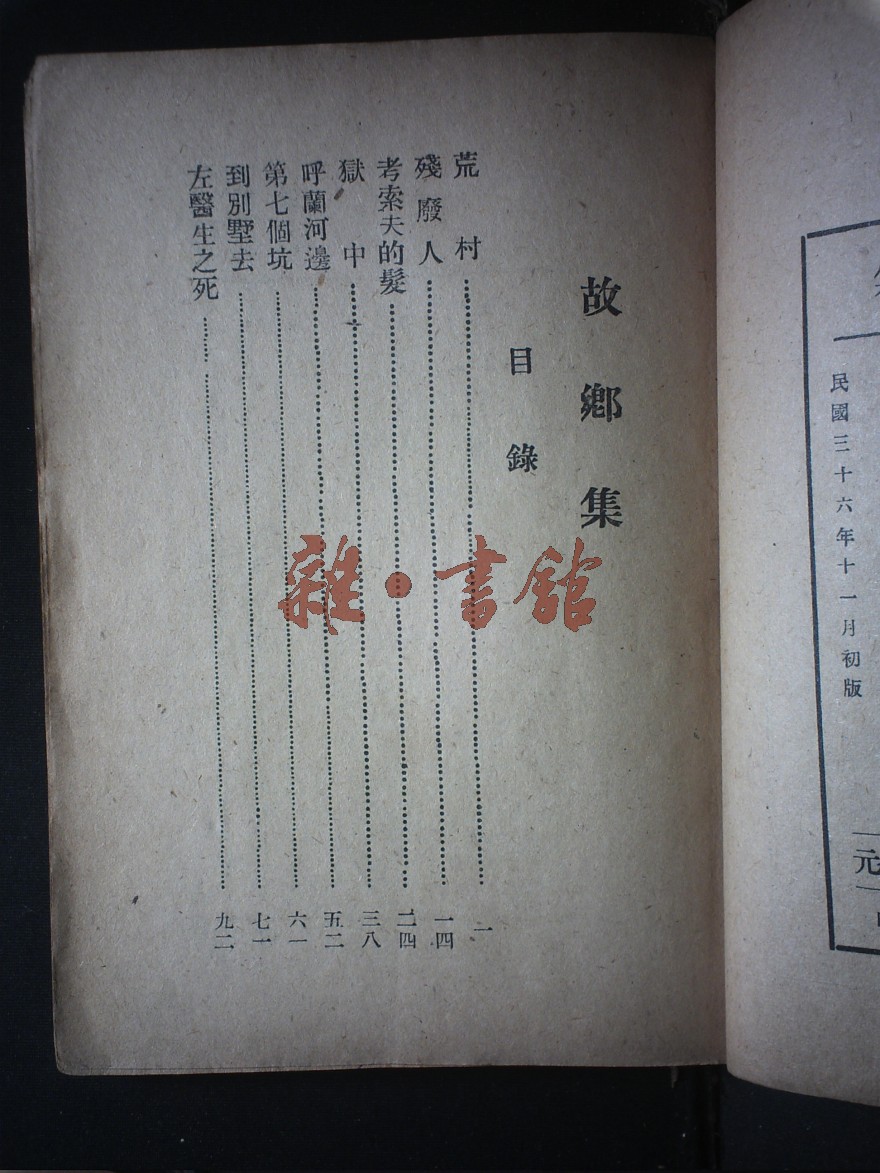 民國三十六年十一月初版
元
故鄉集
目錄
荒村……一
殘廢人……一四
考索夫的髮……二四
獄中……三八
呼蘭河邊……五二
第七個坑……六一
到別墅去……七一
左醫生之死……九二
雜·書館